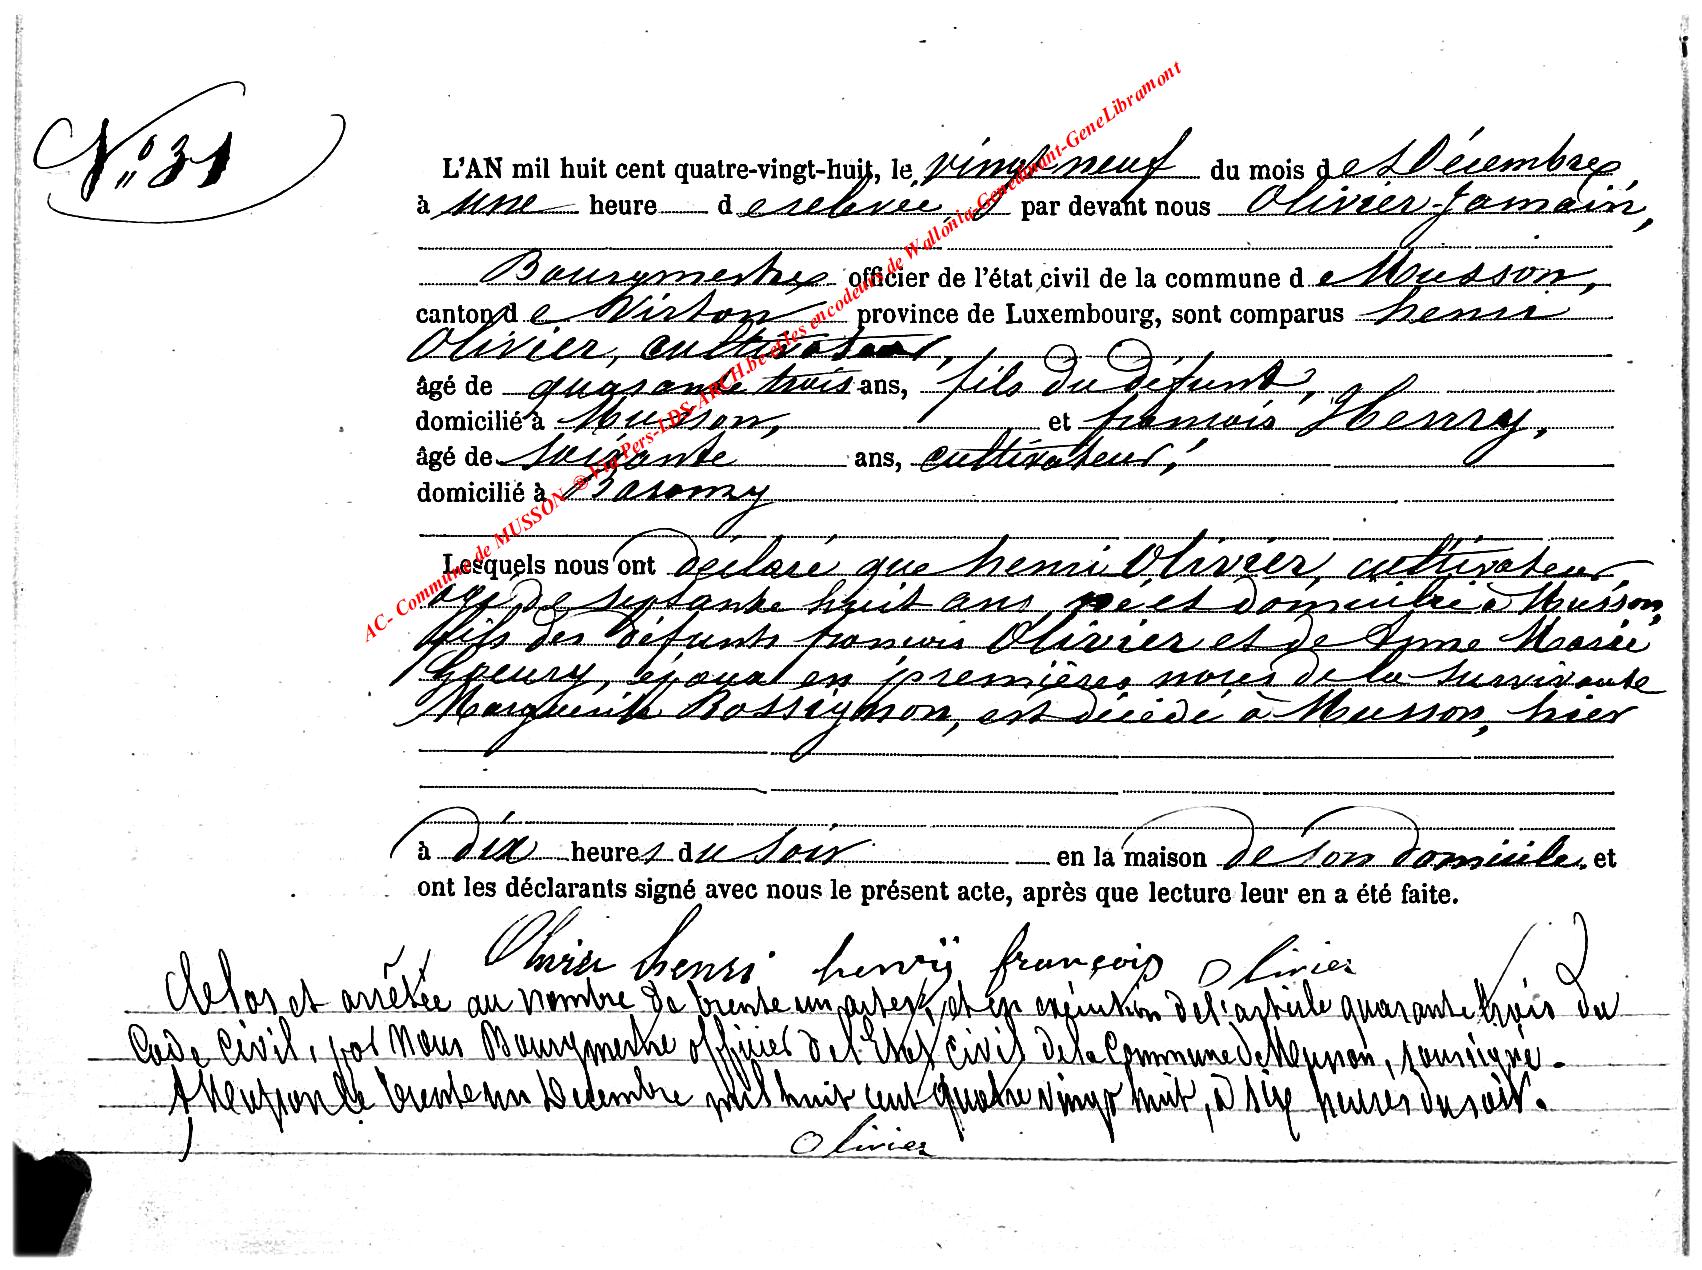 N° 31
L'AN mil huit cent quatre-vingt-huit, le vingt neuf du mois de Décembre
à une heure de relevée, par devant nous Olivier-Jamain,
Bourgmestre officier de l'état civil de la commune de Musson,
canton de Virton province de Luxembourg, sont comparus henri
Olivier, cultivateur,
âgé de quarante trois ans, fils du défunt,
domicilié à Musson, et françois Henry,
âgé de soixante ans, cultivateur,
domicilié à Baranzy
Lesquels nous ont déclaré que henri Olivier, cultivateur
agé de septante huit ans, né et domicilié à Musson,
fils des défunts françois Olivier et de Anne Marie
Goeury, époux en premières noces de la survivante
Marguerite Rossignon, est décédé à Musson, hier
à dix heures du soir en la maison de son domicile. et
ont les déclarants signé avec nous le présent acte, après que lecture leur en a été faite.
Olivier henri henry françois Olivier
Clos et arrêtée au nombre de trente un actes, et en exécution de l'article quarante trois du
Code Civil, par Nous Bourgmestre officier de l'Etat civil de la Commune de Musson, soussigné.
A Musson le trente un Décembre mil huit cent quatre vingt huit, à six heures du soir.
Olivier
AC- Commune de MUSSON ® Via Pers-LDS-ARCH.be et les encodeurs de Wallonia-Genedinant-GeneLibramont